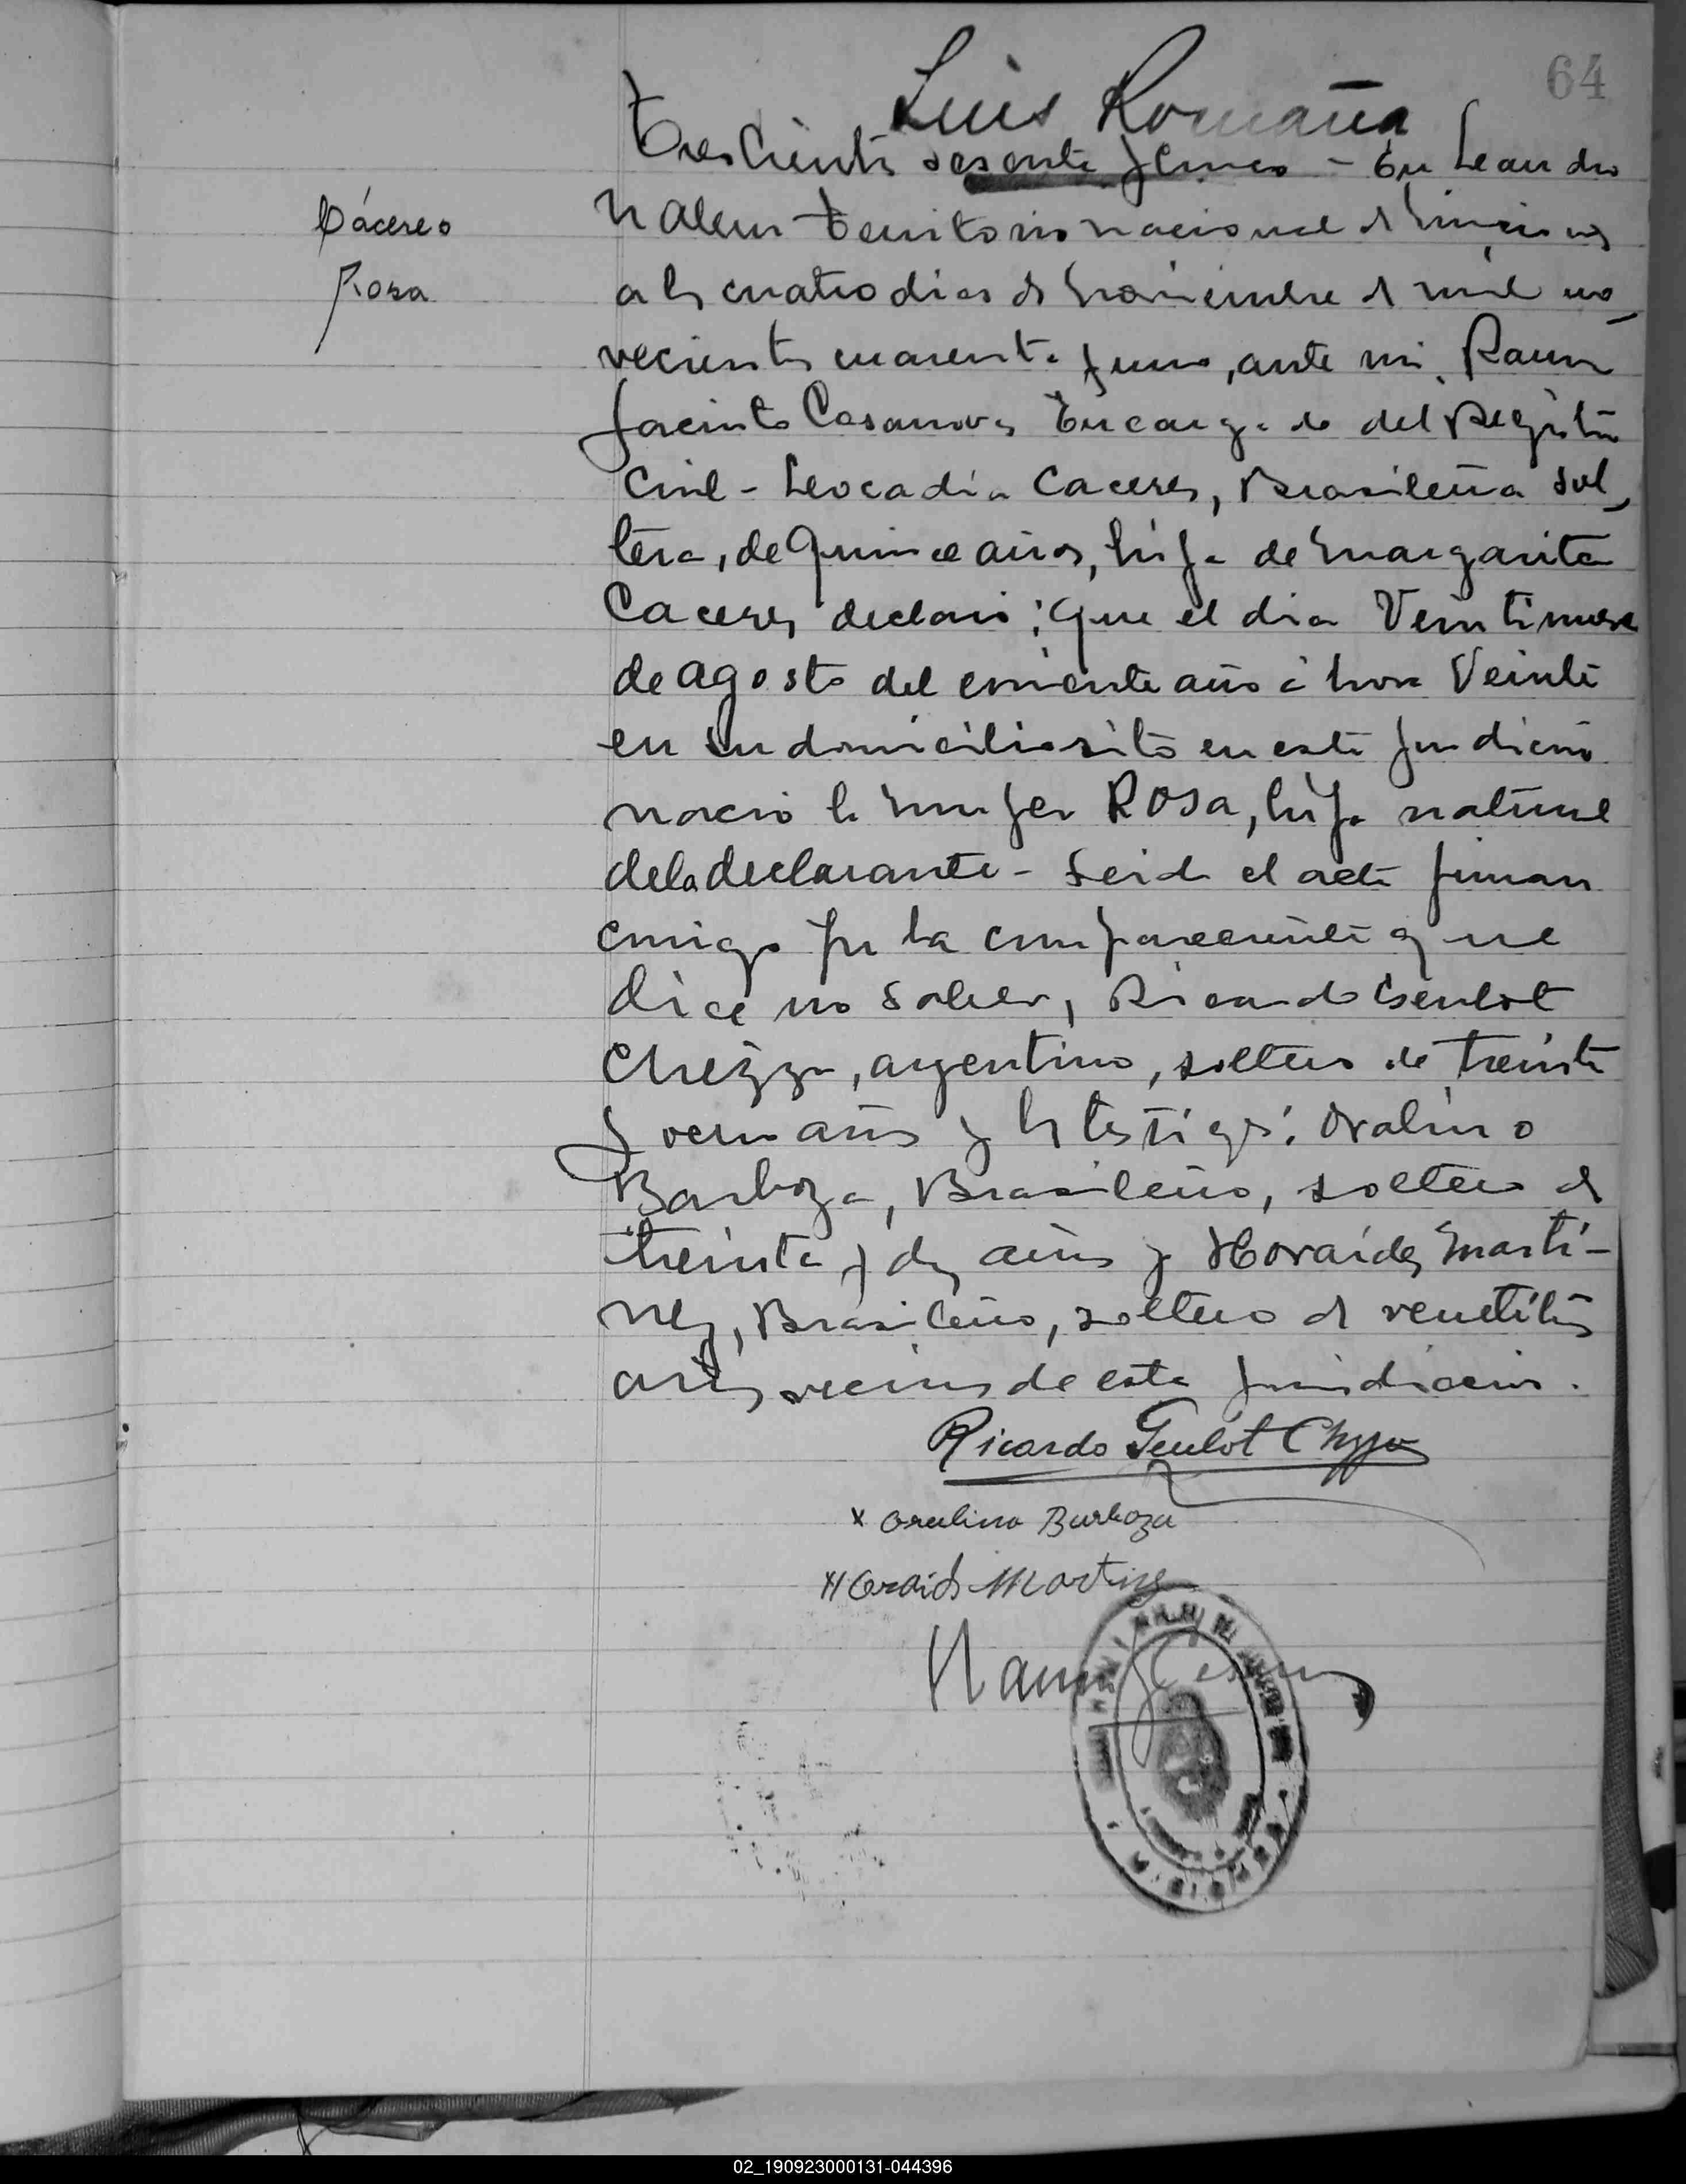 64
Luis Romaña
Trescientos sesenta y cinco - En Leandro
N Alem Territorio nacional de Misiones
Cáceres
a los cuatro dias de Noviembre de mil no
Rosa
vecientos cuarenta y uno, ante mi, Ramon
Jacinto Casanova Encargado del Registro
Civil - Leocadia Caceres, Brasileña sol
tera, de Quince años, hija de Margarita
Caceres declaró: Que el dia Veintinueve
de agosto del corriente año á hora Veinte
en su domicilio sito en esta juridición
nació la mujer ROSA, hija natural
de la declarante - Leida el acta firman
conmigo por la compareciente que
dice no saber, Ricardo
argentino, soltero de treinta
y años y los testigos: Oralino
Barboza, Brasileño, soltero de
treinta y dos años y Horaides Marti-
nez, Brasileño, soltero de
años vecinos de esta jurisdiccion.
Ricardo
x Oralino Barboza
Martinez
02_190923000131-044396